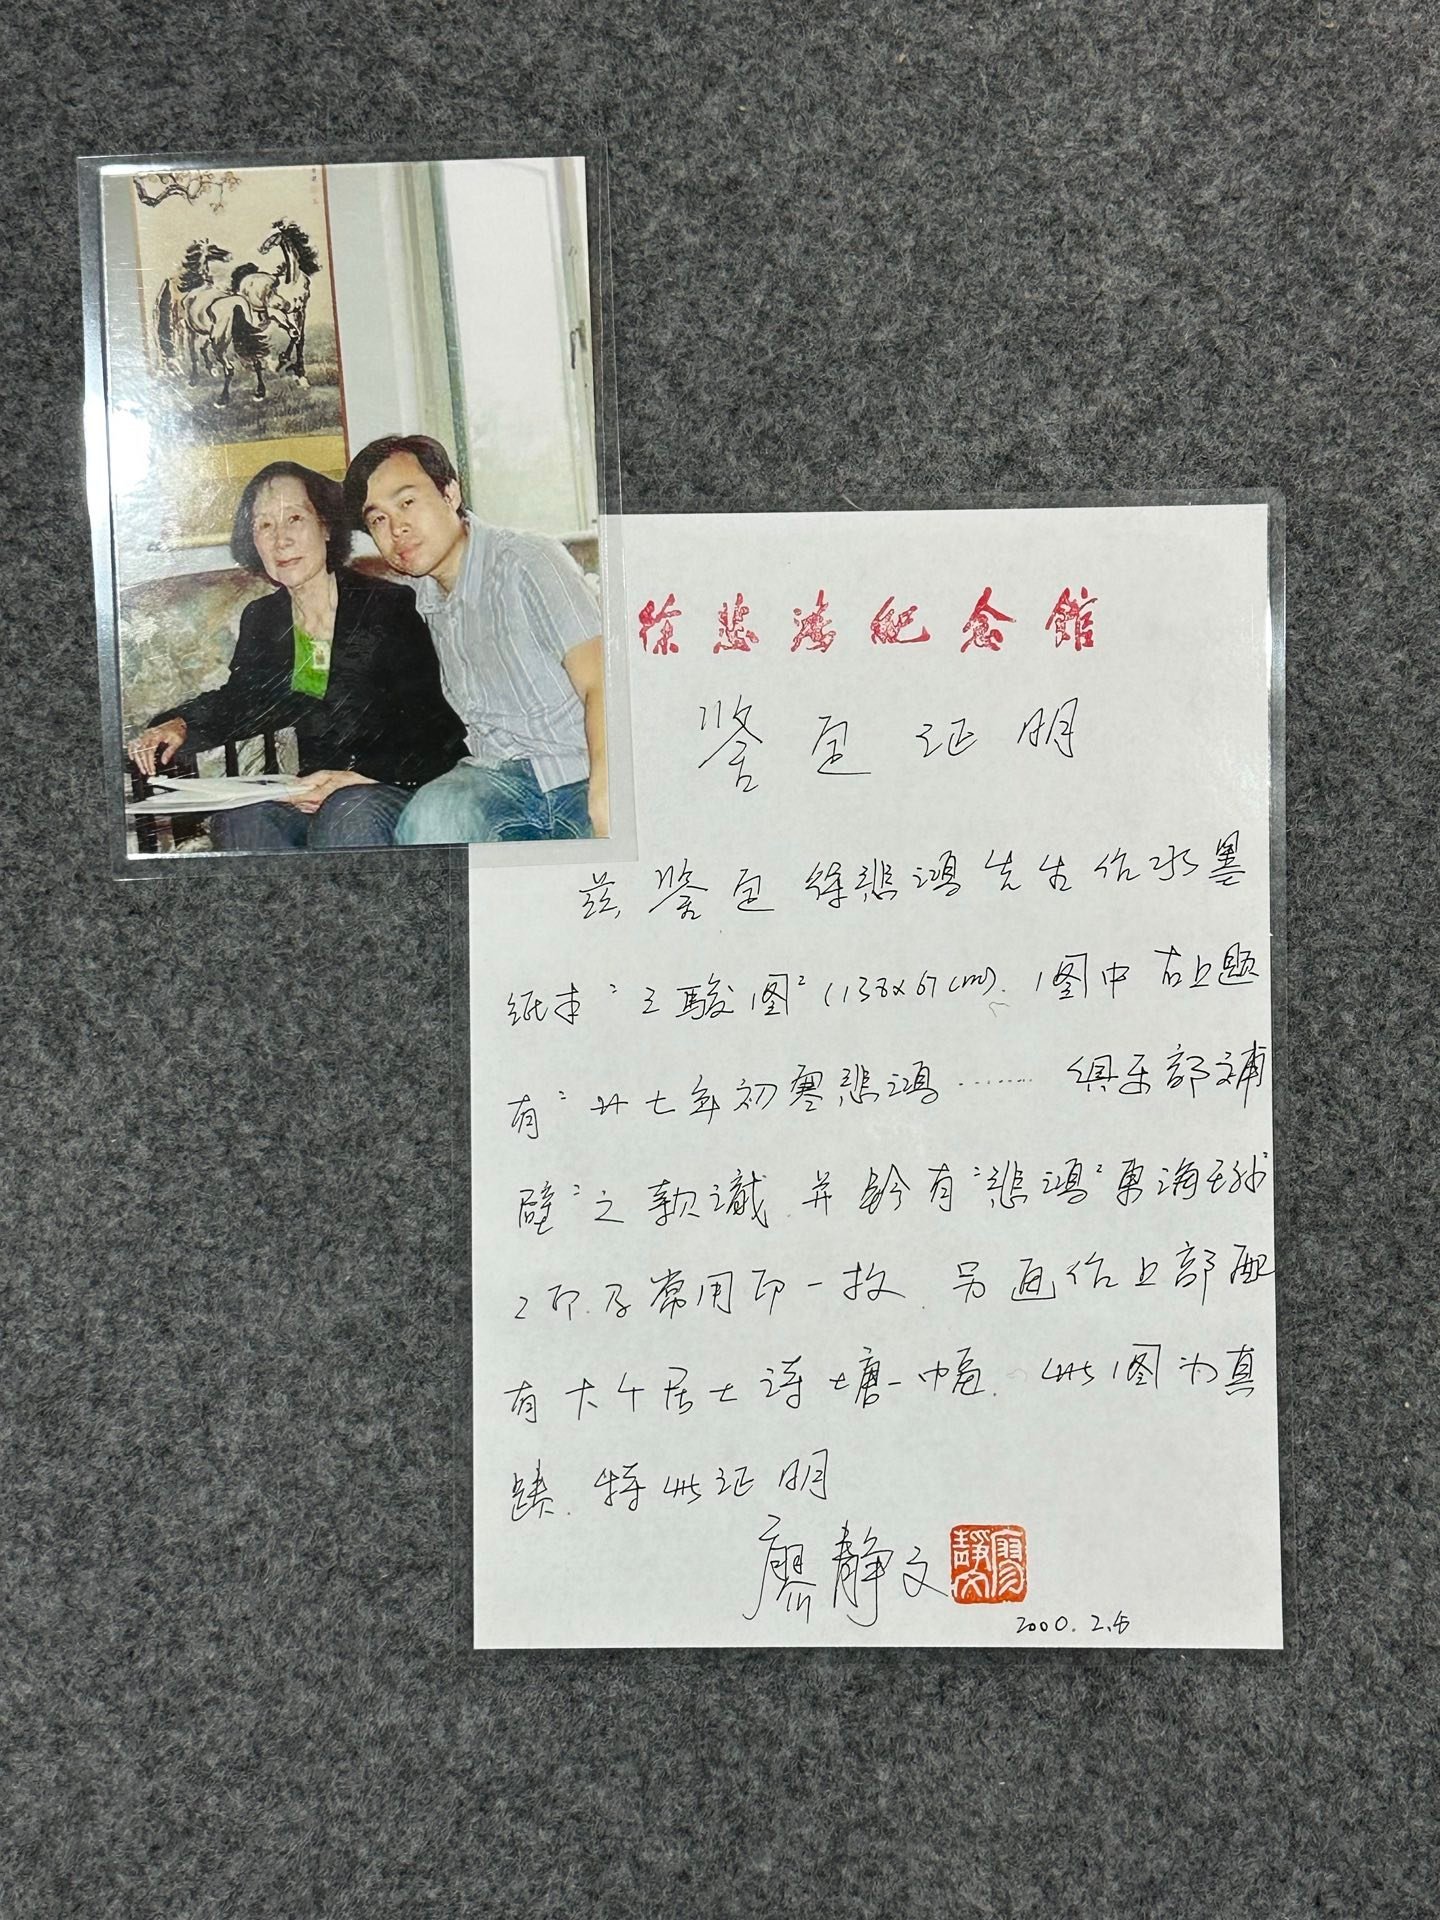 徐悲鸿纪念馆
鉴定证明
兹鉴定徐悲鸿先生作水墨
纸本"三骏图"(138x67cm).图中右上题
有"廿七年初寒悲鸿………俱乐部补
壁"之款识.并钤有"悲鸿""东海王孙"
之印.及常用印一枚.另画作上部配
有大千居士诗塘一幅.此图为真
蹟.特此证明
廖静文
廖靜文
2000.2.5